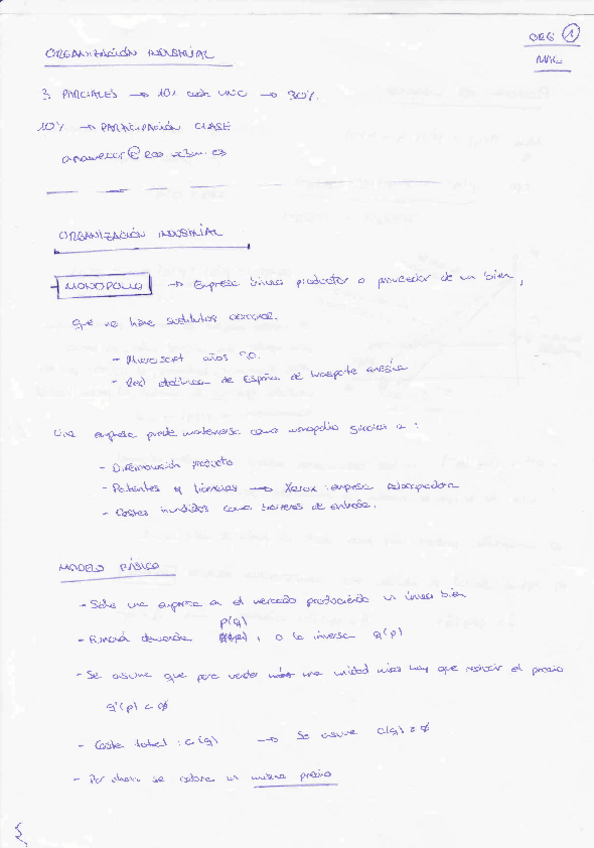 ORGANIZACIÓN INDUSTRIAL
1
3 PARCIALES → 10% cada uno → 30%.
10% → PARTICIPACIÓN CLASE
ORGANIZACIÓN INDUSTRIAL
MONOPOLIO → Empresa única productor o proveedor de un bien,
que no tiene sustitutos cercanos.
- Microsoft años 90.
- Red eléctrica de España de transporte energía
Una empresa puede mantenerse como monopolio gracias a :
- Diferenciación producto
- Patentes y licencias → Xerox : empresa fotocopiadora
- Costes hundidos como barreras de entrada.
MODELO BÁSICO
- Solo una empresa en el mercado produciendo un único bien
p(q)
- Función demanda , o la inversa q(p)
- Se asume que para vender una unidad más hay que reducir el precio
q'(p) < 0
- Coste total : c(q) → Se asume c'(q) ≥ 0
- Por ahora se cobra un mismo precio